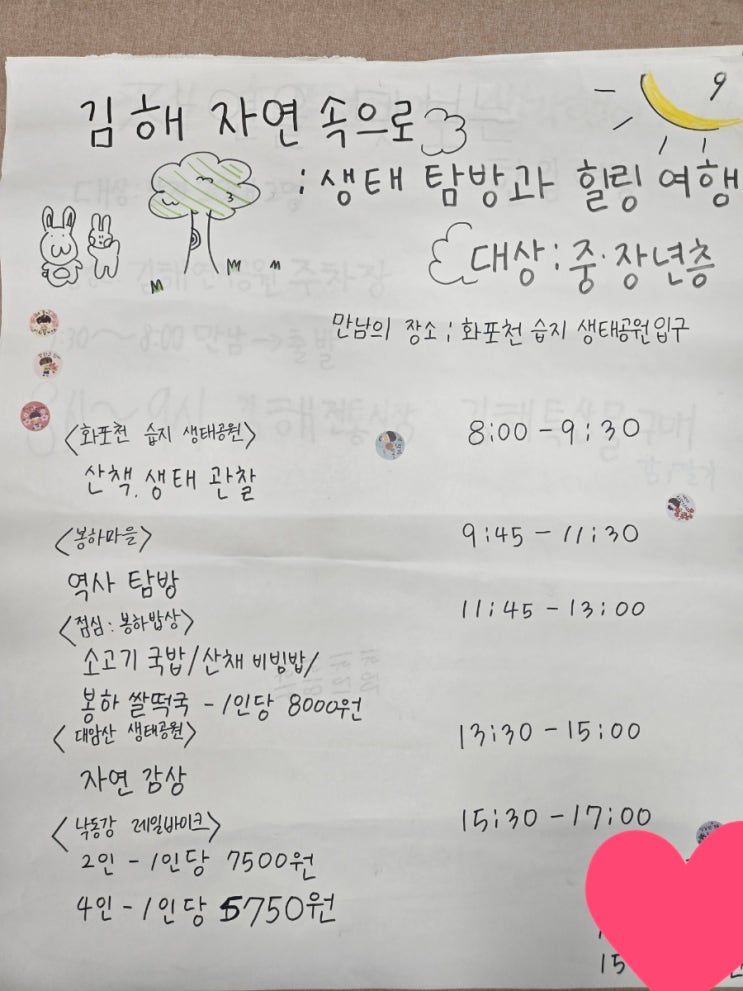 9
김해 자연 속으로
: 생태 탐방과 힐링 여행
대상 : 중·장년층
만남의 장소 ; 화포천 습지 생태공원입구
<화포천 습지 생태공원> 8:00 - 9:30
산책, 생태 관찰
<봉하마을> 9:45 - 11:30
역사 탐방
<점심 : 봉하밥상> 11:45 - 13:00
소고기 국밥/산채 비빔밥/
봉하 쌀떡국 - 1인당 8000원
<대암산 생태공원> 13:30 - 15:00
자연 감상
<낙동강 레일바이크> 15:30 - 17:00
2인 - 1인당 7500원
4인 - 1인당 5750원
15